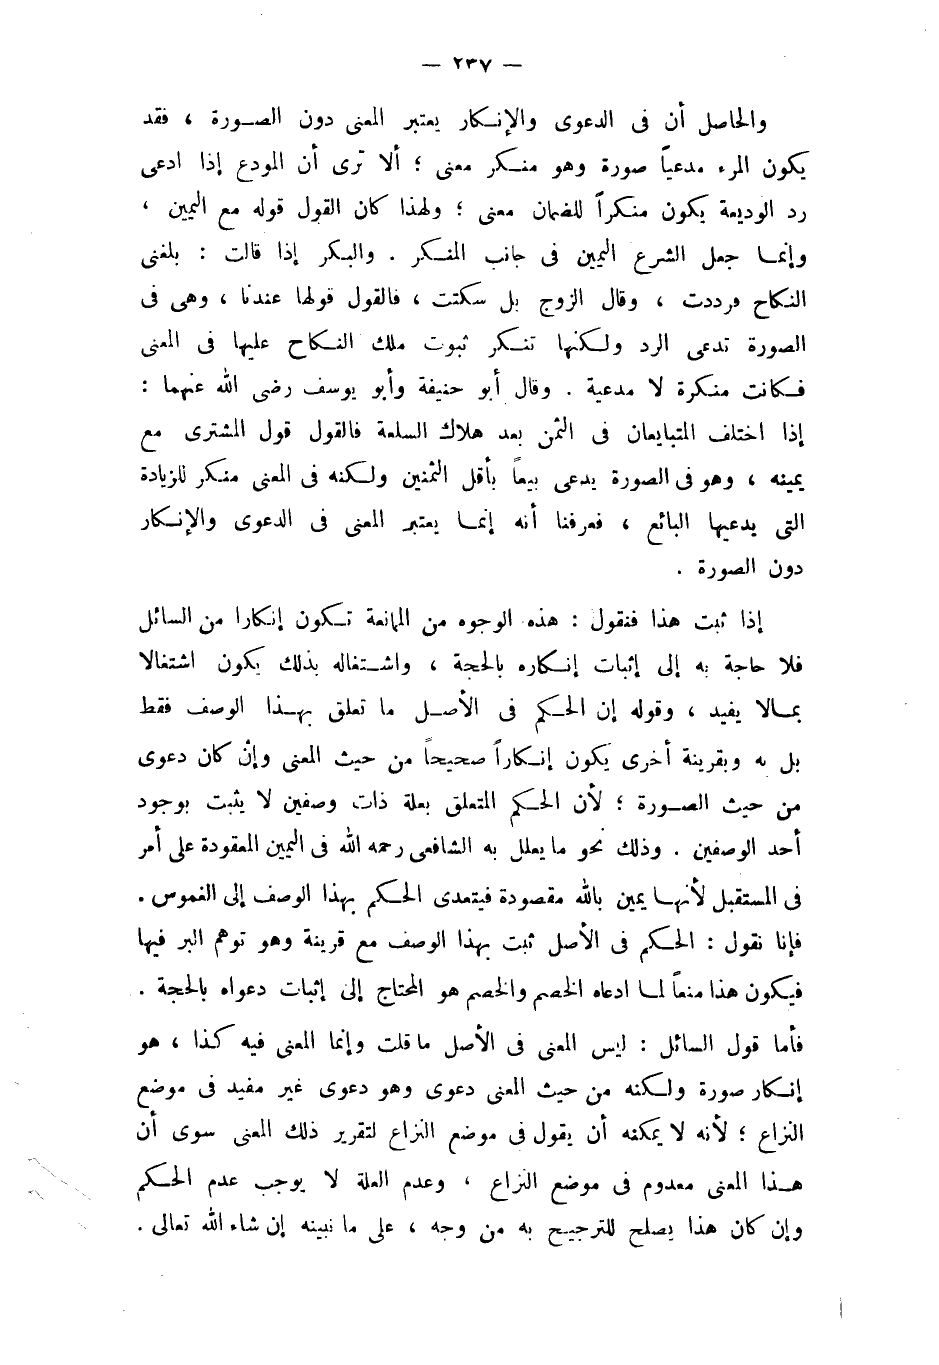 — ٢٣٧ —
والحاصل أن فى الدعوى والإنكار يعتبر المعنى دون الصورة ، فقد
يكون المرء مدعياً صورة وهو منكر معنى ؛ ألا ترى أن المودع إذا ادعى
رد الوديعة يكون منكراً للضمان معنى ؛ ولهذا كان القول قوله مع اليمين ،
وإنما جعل الشرع اليمين فى جانب المنكر . والبكر إذا قالت : بلغنى
النكاح فرددت ، وقال الزوج بل سكتت ، فالقول قولها عندنا ، وهى فى
الصورة تدعى الرد ولكنها تنكر ثبوت ملك النكاح عليها فى المعنى
فكانت منكرة لا مدعية . وقال أبو حنيفة وأبو يوسف رضى الله عنهما :
إذا اختلف المتبايعان فى الثمن بعد هلاك السلعة فالقول قول المشترى مع
يمينه ، وهو فى الصورة يدعى بيعاً بأقل الثمنين ولكنه فى المعنى منكر للزيادة
التى يدعيها البائع ، فعرفنا أنه إنما يعتبر المعنى فى الدعوى والإنكار
دون الصورة .
إذا ثبت هذا فنقول : هذه الوجوه من الممانعة تكون إنكارا من السائل
فلا حاجة به إلى إثبات إنكاره بالحجة ، واشتغاله بذلك يكون اشتغالا
بمالا يفيد ، وقوله إن الحكم فى الأصل ما تعلق بهذا الوصف فقط
بل به وبقرينة أخرى يكون إنكاراً صحيحاً من حيث المعنى وإن كان دعوى
من حيث الصورة ؛ لأن الحكم المتعلق بعلة ذات وصفين لا يثبت بوجود
أحد الوصفين . وذلك نحو ما يعلل به الشافعى رحمه الله فى اليمين المعقودة على أمر
فى المستقبل لأنها يمين بالله مقصودة فيتعدى الحكم بهذا الوصف إلى الغموس .
فإنا نقول : الحكم فى الأصل ثبت بهذا الوصف مع قرينة وهو توهم البر فيها
فيكون هذا منعاً لما ادعاه الخصم والخصم هو المحتاج إلى إثبات دعواه بالحجة .
فأما قول السائل : ليس المعنى فى الأصل ما قلت وإنما المعنى فيه كذا ، هو
إنكار صورة ولكنه من حيث المعنى دعوى وهو دعوى غير مفيد فى موضع
النزاع ؛ لأنه لا يمكنه أن يقول فى موضع النزاع لتقرير ذلك المعنى سوى أن
هذا المعنى معدوم فى موضع النزاع ، وعدم العلة لا يوجب عدم الحكم
وإن كان هذا يصلح للترجيح به من وجه ، على ما نبينه إن شاء الله تعالى .